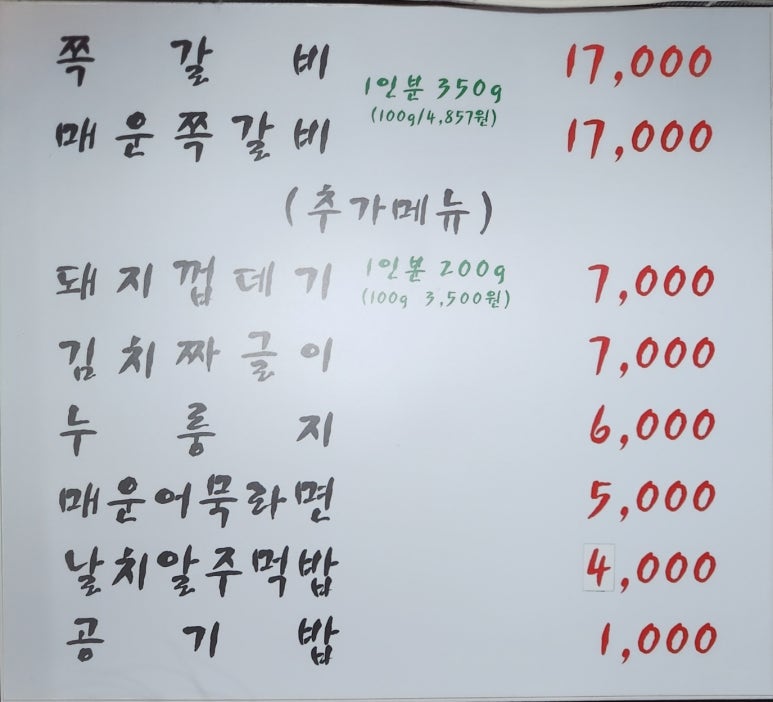 쪽갈비 1인분 350g 17,000
(100g/4,857원)
매운쪽갈비 17,000
(추가메뉴)
돼지껍데기 1인분 200g 7,000
(100g 3,500원)
김치짜글이 7,000
누룽지 6,000
매운어묵라면 5,000
날치알주먹밥 4,000
공기밥 1,000